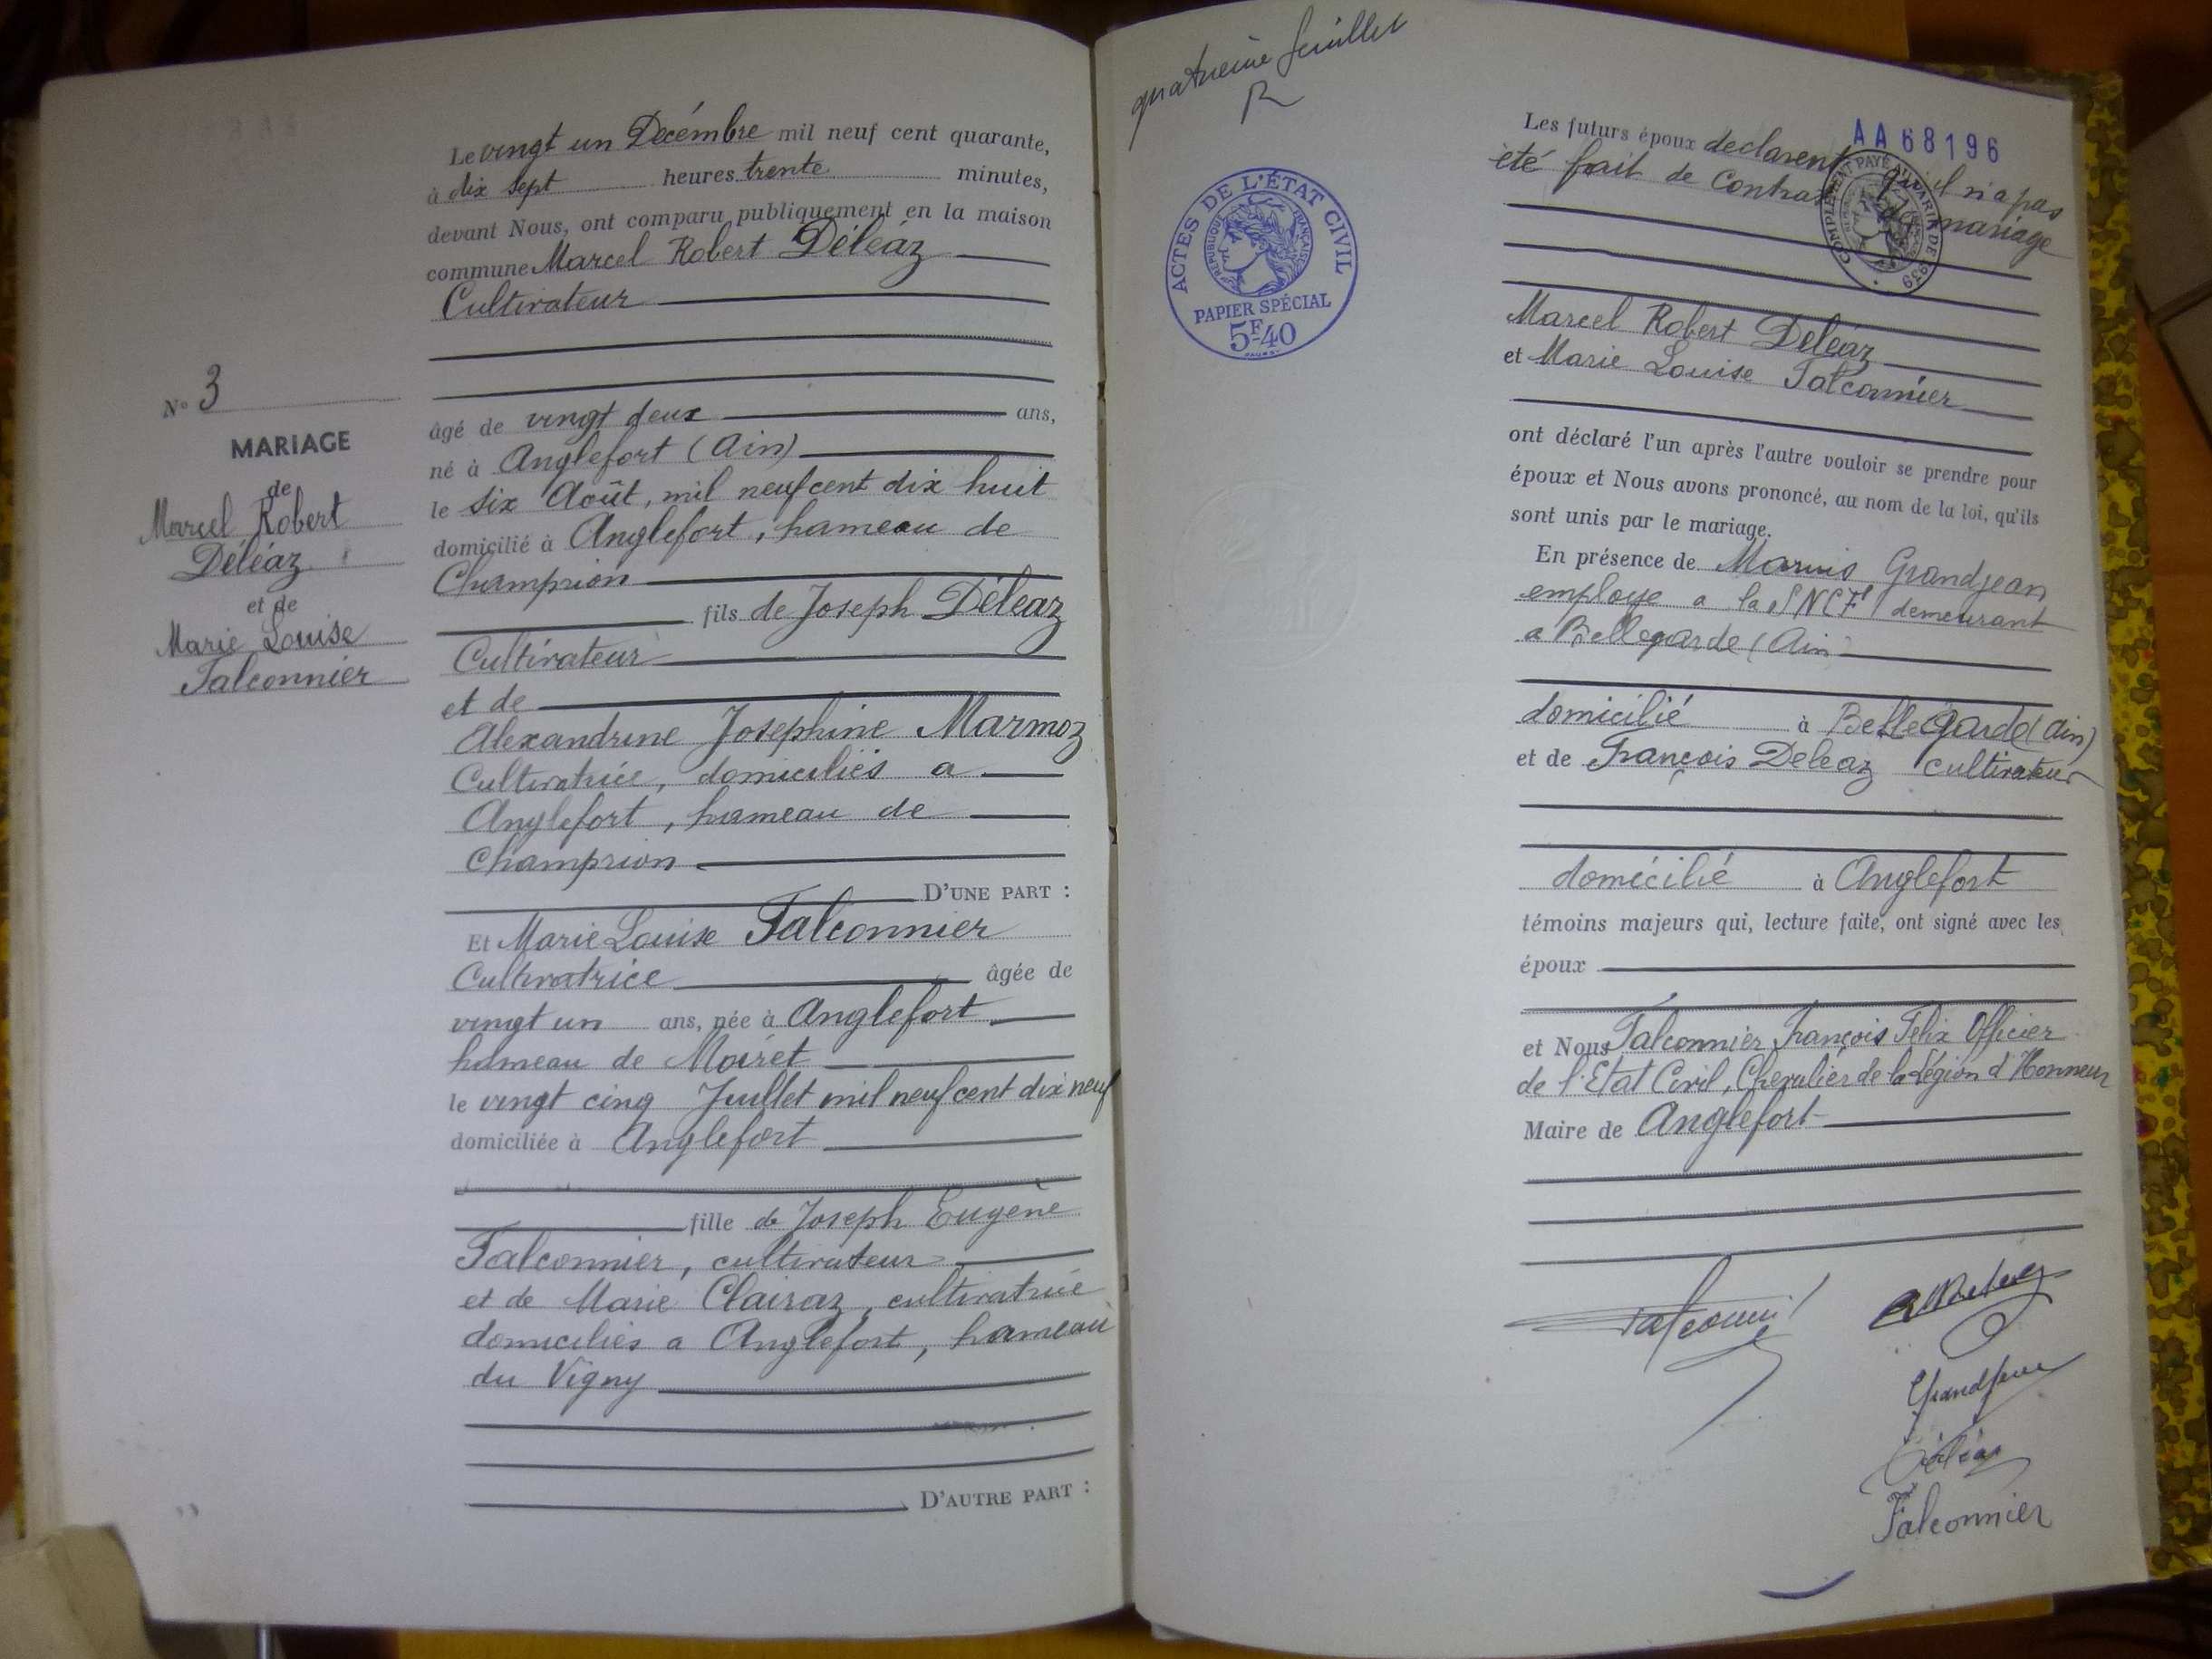 N° 3
MARIAGE
de
Marcel Robert
Déléaz
et de
Marie Louise
Falconnier
Le vingt un Decémbre mil neuf cent quarante,
à dix sept heures trente minutes,
devant Nous, ont comparu publiquement en la maison
commune Marcel Robert Déléaz
Cultivateur
âgé de vingt deux ans,
né à Anglefort (Ain)
le six Août, mil neuf cent dix huit
domicilié à Anglefort, hameau de
Champrion
fils de Joseph Déléaz
Cultivateur
et de
Alexandrine Josephine Marmoz
Cultivatrice, domiciliés a
Anglefort, hameau de
Champrion
D'UNE PART :
Et Marie Louise Falconnier
Cultivatrice âgée de
vingt un ans, née à Anglefort
hameau de Moiret
le vingt cinq Juillet mil neuf cent dix neuf
domiciliée à Anglefort
fille de Joseph Eugène
Falconnier, cultivateur
et de Marie Clairaz, cultivatrice
domiciliés a Anglefort, hameau
du Vigny
D'AUTRE PART :
quatrieme feuillet
ACTES DE L'ÉTAT CIVIL
RÉPUBLIQUE FRANÇAISE
PAPIER SPÉCIAL
5F40
AA68196
COMPLÉMENT PAYÉ TARIF DE 1939
Les futurs époux declarent qu'il n'a pas
été fait de contrat de mariage
Marcel Robert Deléaz
et Marie Louise Falconnier
ont déclaré l'un après l'autre vouloir se prendre pour
époux et Nous avons prononcé, au nom de la loi, qu'ils
sont unis par le mariage.
En présence de Marius Grandjean
employe a la SNCF demeurant
a Bellegarde (Ain)
domicilié à Bellegarde (Ain)
et de François Deleaz cultivateur
domécilié à Anglefort
témoins majeurs qui, lecture faite, ont signé avec les
époux
et Nous Falconnier François Felix Officier
de l'Etat Civil, Chevalier de la Légion d'Honneur
Maire de Anglefort
Falconnier
Grandjean
Déléaz
Falconnier